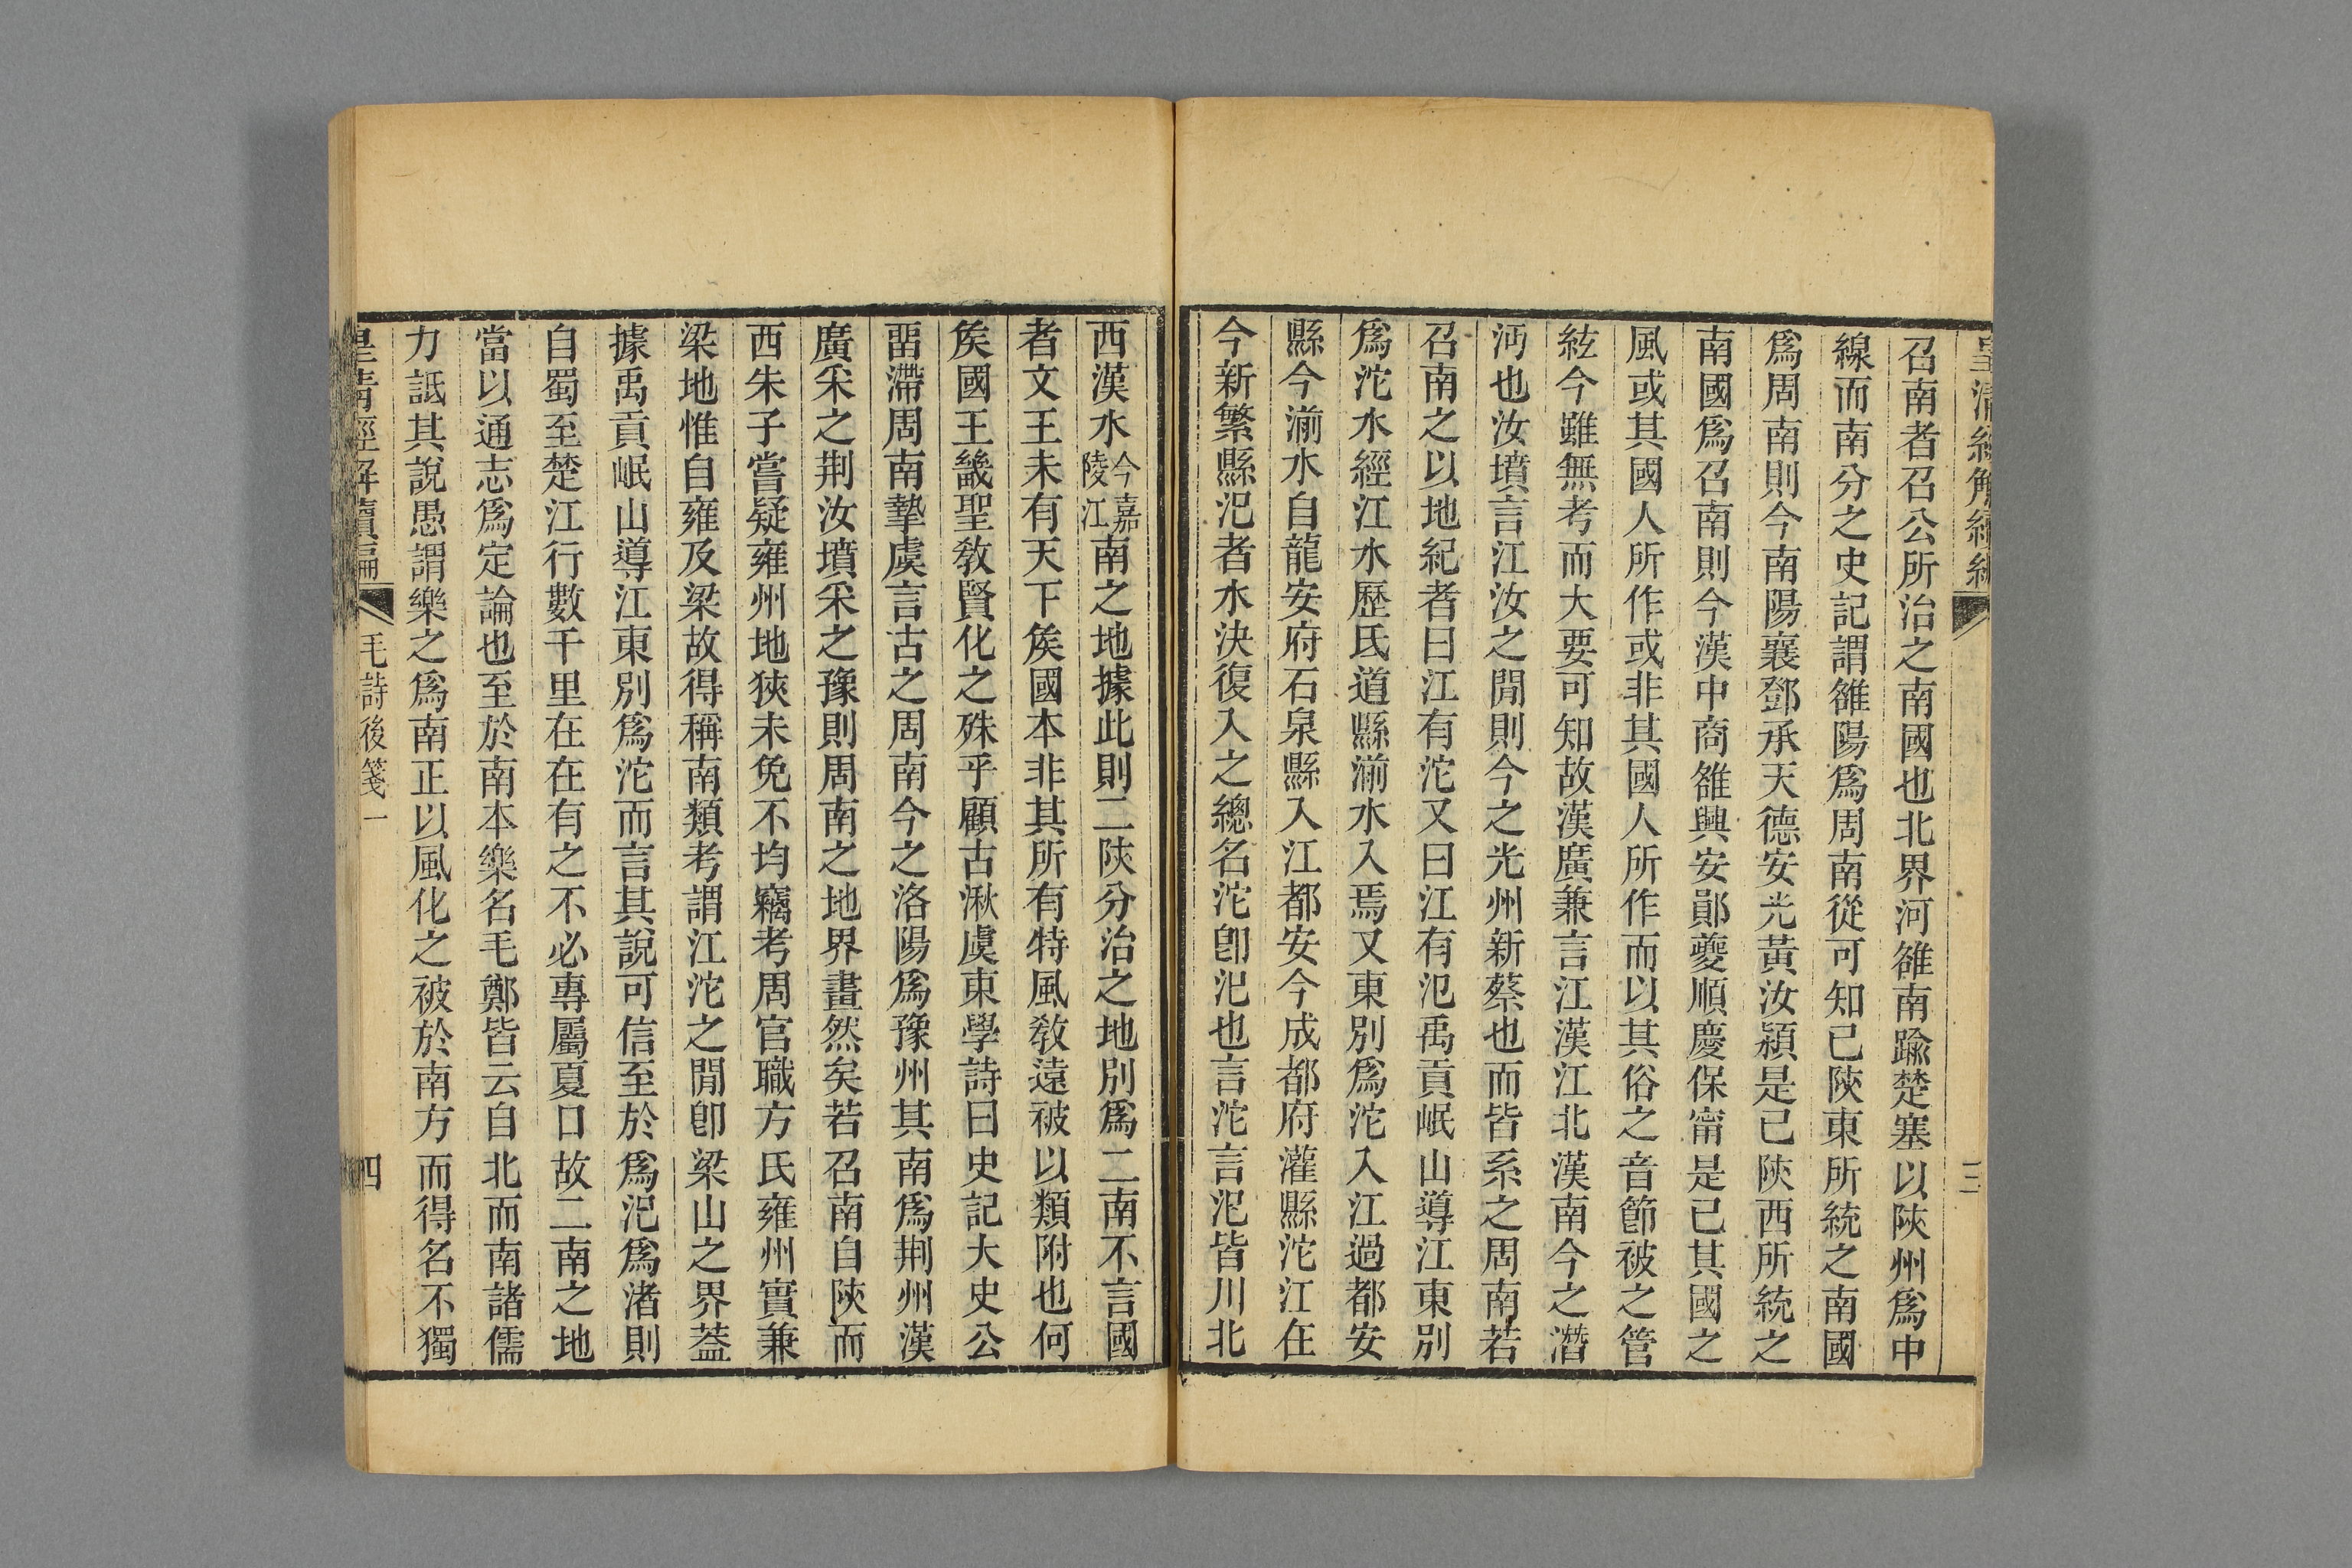 召南者召公所治之南國也北界河雒南踰楚塞以陝州爲中
線而南分之史記謂雒陽爲周南從可知已陝東所統之南國
爲周南則今南陽襄鄧承天德安光黃汝潁是已陝西所統之
南國爲召南則今漢中商雒興安鄖夔順慶保甯是已其國之
風或其國人所作或非其國人所作而以其俗之音節被之管
絃今雖無考而大要可知故漢廣兼言江漢江北漢南今之潛
沔也汝墳言江汝之閒則今之光州新蔡也而皆系之周南若
召南之以地紀者曰江有沱又曰江有汜禹貢岷山導江東別
爲沱水經江水歷氐道縣湔水入焉又東別爲沱入江過都安
縣今湔水自龍安府石泉縣入江都安今成都府灌縣沱江在
今新繁縣汜者水決復入之總名沱卽汜也言沱言汜皆川北
西漢水今嘉陵江南之地據此則二陝分治之地別爲二南不言國
者文王未有天下矦國本非其所有特風敎遠被以類附也何
矦國王畿聖敎賢化之殊乎顧古湫虞東學詩曰史記大史公
畱滯周南摯虞言古之周南今之洛陽爲豫州其南爲荆州漢
廣采之荆汝墳采之豫則周南之地界畫然矣若召南自陝而
西朱子嘗疑雍州地狹未免不均竊考周官職方氏雍州實兼
梁地惟自雍及梁故得稱南類考謂江沱之閒卽梁山之界蓋
據禹貢岷山導江東別爲沱而言其說可信至於爲汜爲渚則
自蜀至楚江行數千里在在有之不必專屬夏口故二南之地
當以通志爲定論也至於南本樂名毛鄭皆云自北而南諸儒
力詆其說愚謂樂之爲南正以風化之被於南方而得名不獨
皇清經解續編 毛詩後箋一 四